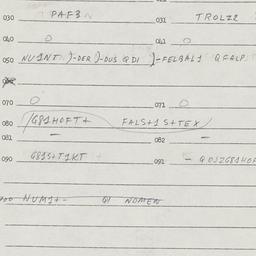 030 PAF3 031 TROLZ2
040 0 041 0
050 NU1NT. )-DER )-DUS QDI )-FELBAL1 QFALP
070 0 071 0
080 /G81HOFT+ FALS+1S+TEX/
081 - 082 -
090 G81S+T1KT 091 - QOJZG81HOF
NUM1+- QI NOMEN